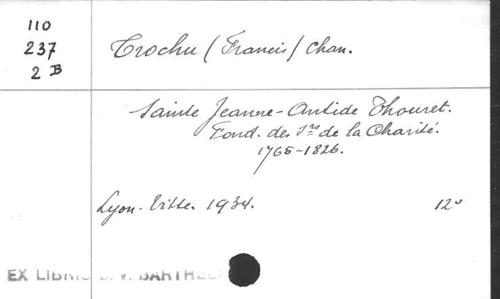 110
237
2 B
Trochu (Francis) Chan.
Sainte Jeanne-Antide Thouret.
Fond. des Srs de la Charité.
1765-1826.
Lyon. Vitte. 1934. 12°
EX LIBRIS